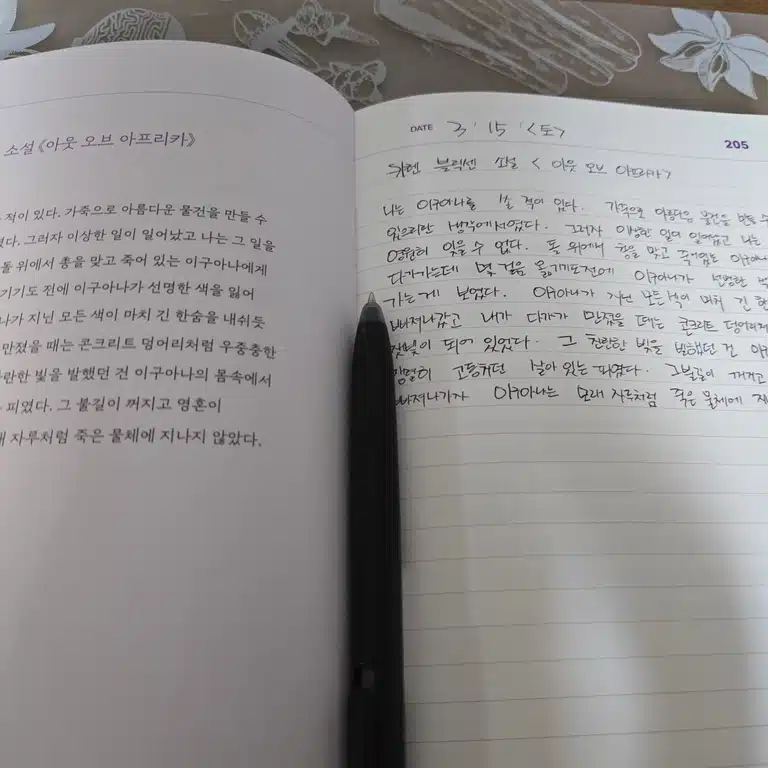 소설 《아웃 오브 아프리카》
적이 있다. 가죽으로 아름다운 물건을 만들 수
그러자 이상한 일이 일어났고 나는 그 일을
돌 위에서 총을 맞고 죽어 있는 이구아나에게
기기도 전에 이구아나가 선명한 색을 잃어
나가 지닌 모든 색이 마치 긴 한숨을 내쉬듯
만졌을 때는 콘크리트 덩어리처럼 우중충한
란한 빛을 발했던 건 이구아나의 몸속에서
피였다. 그 불길이 꺼지고 영혼이
자루처럼 죽은 물체에 지나지 않았다.
DATE 3 · 15 · <토>
205
카렌 블릭센 소설 < 아웃 오브 아프리카>
나는 이구아나를 쏜 적이 있다. 가죽으로 아름다운 물건을 만들 수
있으리란 생각에서였다. 그러자 이상한 일이 일어났고 나는
영원히 잊을 수 없다. 돌 위에서 총을 맞고 죽어있는 이구아나
다가가는데 몇 걸음 옮기기도전에 이구아나가 선명한 색
가는게 보였다. 이구아나가 지닌 모든 색이 마치 긴 한
빠져나갔고 내가 다가가 만졌을 때는 콘크리트 덩어리처
잿빛이 되어 있었다. 그 찬란한 빛을 발했던 건 이구
맹렬히 고동치던 살아 있는 피였다. 그불길이 꺼지고
빠져나가자 이구아나는 모래 자루처럼 죽은 물체에 지